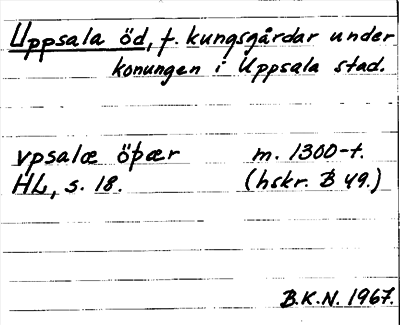 Uppsala öd, f. kungsgårdar under
konungen i Uppsala stad.
vpsalæ öþær m. 1300-t.
HL, s. 18. (hskr. B 49.)
B.K.N. 1967.